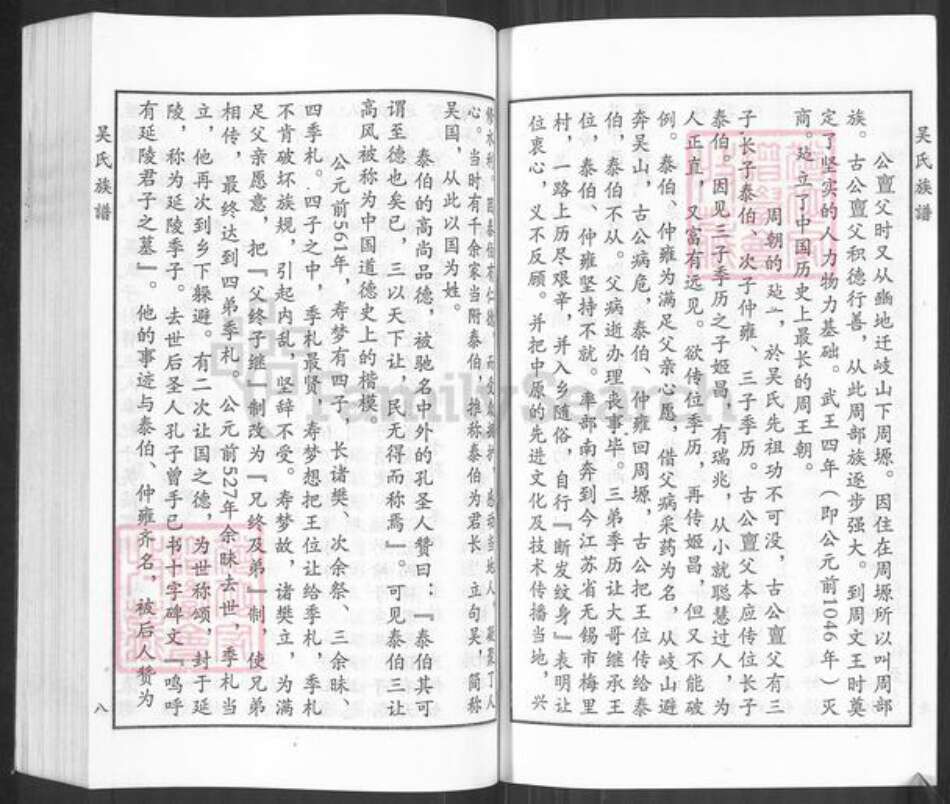 吴氏族谱
公亶父时又从豳地迁岐山下周塬。因住在周塬所以叫周部
族。古公亶父积德行善，从此周部族逐步强大。到周文王时奠
定了坚实的人力物力基础。武王四年（即公元前1046年）灭
商。建立了中国历史上最长的周王朝。
周朝的建立，於吴氏先祖功不可没，古公亶父有三
子长子泰伯、次子仲雍、三子季历。古公亶父本应传位长子
泰伯。因见三子季历之子姬昌，有瑞兆，从小就聪慧过人，为
人正直，又富有远见。欲传位季历，再传姬昌，但又不能破
例。泰伯、仲雍为满足父亲心愿，借父病采药为名，从岐山避
奔吴山，古公病危，泰伯、仲雍回周塬，古公把王位传给泰
伯，泰伯不从。父病逝办理丧事毕。三弟季历让大哥继承王
位，泰伯、仲雍坚持不就。率部南奔到今江苏省无锡市梅里
村，一路上历尽艰辛，并入乡随俗，自行『断发纹身』表明让
位衷心，义不反顾。并把中原的先进文化及技术传播当地，兴
修水利。因泰伯有仁德，
心。当时有千余家当附泰伯，推称泰伯为君长，立句吴，简称
吴国，从此以国为姓。
泰伯的高尚品德，被驰名中外的孔圣人赞曰：『泰伯其可
谓至德也矣已，三以天下让，民无得而称焉』。可见泰伯三让
高风被称为中国道德史上的楷模。
公元前561年，寿梦有四子，长诸樊、次余祭、三余昧、
四季札。四子之中，季札最贤，寿梦想把王位让给季札，季札
不肯破坏族规，引起内乱，坚辞不受。寿梦故，诸樊立，为满
足父亲愿意，把『父终子继』制改为『兄终及弟』制，使兄弟
相传，最终达到四弟季札。公元前527年余昧去世，季札当
立，他再次到乡下躲避。有二次让国之德，为世称颂，封于延
陵，称为延陵季子。去世后圣人孔子曾手已书十字碑文『鸣呼
有延陵君子之墓』。他的事迹与泰伯、仲雍齐名，被后人赞为
吴氏族谱
八
FamilySearch